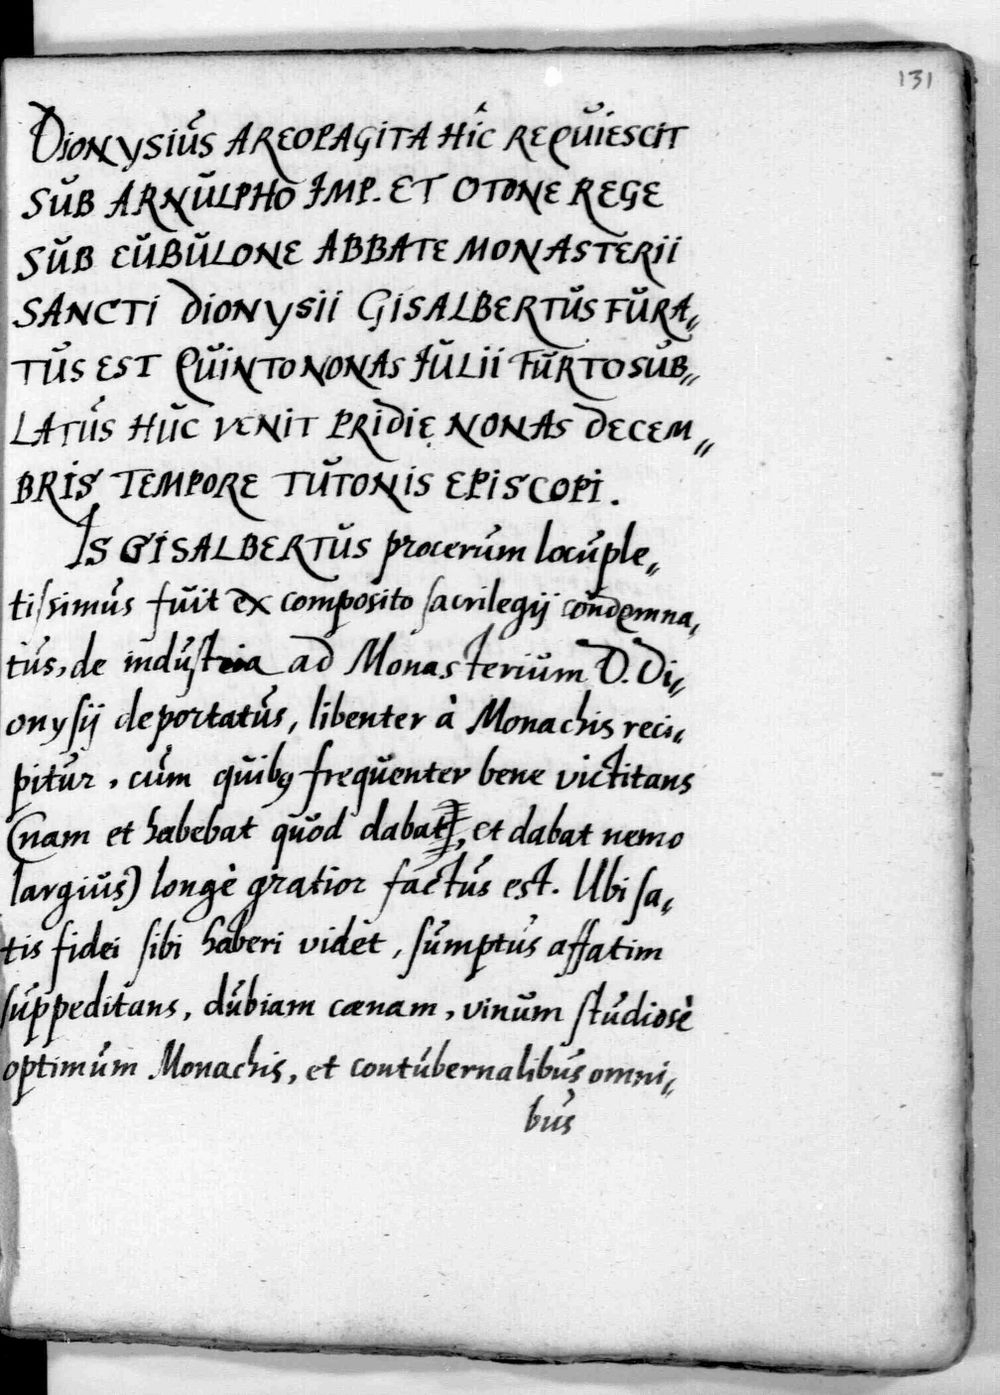 131
DIONYSIŬS AREOPAGITA HÎC REQŬIESCIT
SŬB ARNŬLPHO IMP. ET OTONE REGE
SŬB EŬBŬLONE ABBATE MONASTERII
SANCTI DIONYSII GISALBERTŬS FŬRA„
TŬS EST QŬINTO NONAS IŬLII FŬRTO SŬB„
LATŬS HŬC VENIT PRIDIĘ NONAS DECEM„
BRIS TEMPORE TŬTONIS EPISCOPI.
IS GISALBERTŬS procerŭm locŭple„
tiſsimŭs fŭit ex composito ſacrilegij condemna„
tŭs, de indŭſtria ad Monasteriŭm D. Di„
onyſij deportatŭs, libenter à Monachis reci„
pitŭr, cŭm qŭibꝫ freqŭenter bene victitans
(nam et habebat qŭod dabat, et dabat nemo
largiŭs) longè gratior factŭs est. Ubi ſa„
tis fidei ſibi haberi videt, ſŭmptŭs affatim
ſŭppeditans, dŭbiam cænam, vinŭm ſtŭdiosè
optimŭm Monachis, et contŭbernalibŭs omni„
bŭs